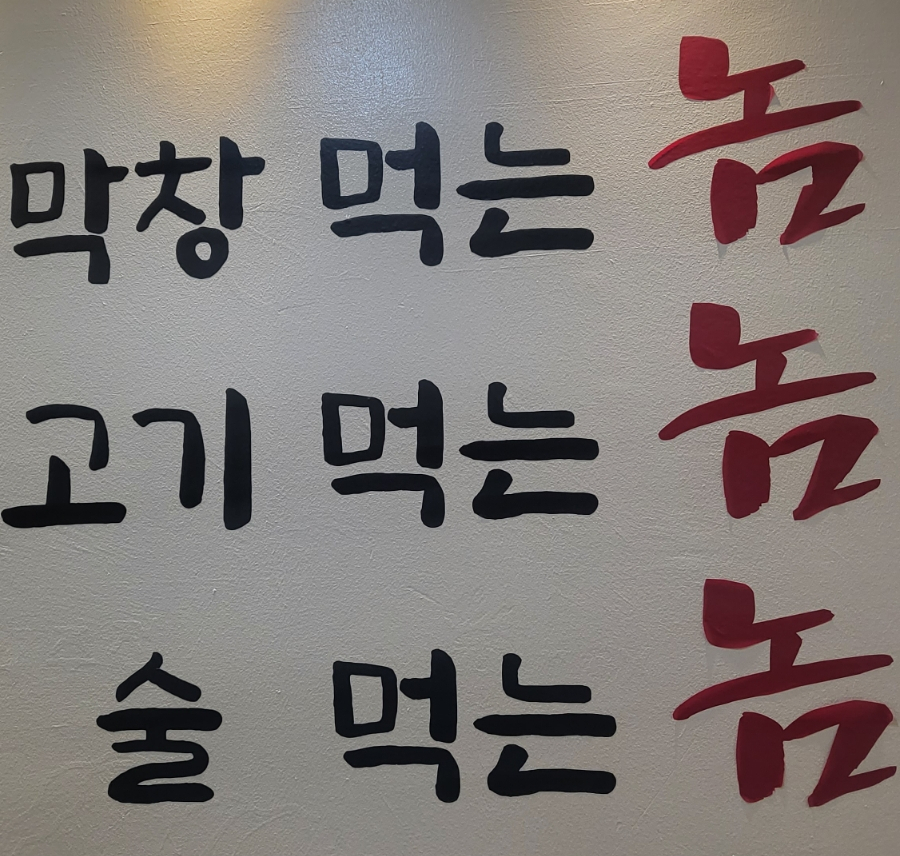 막창 먹는 놈
고기 먹는 놈
술 먹는 놈